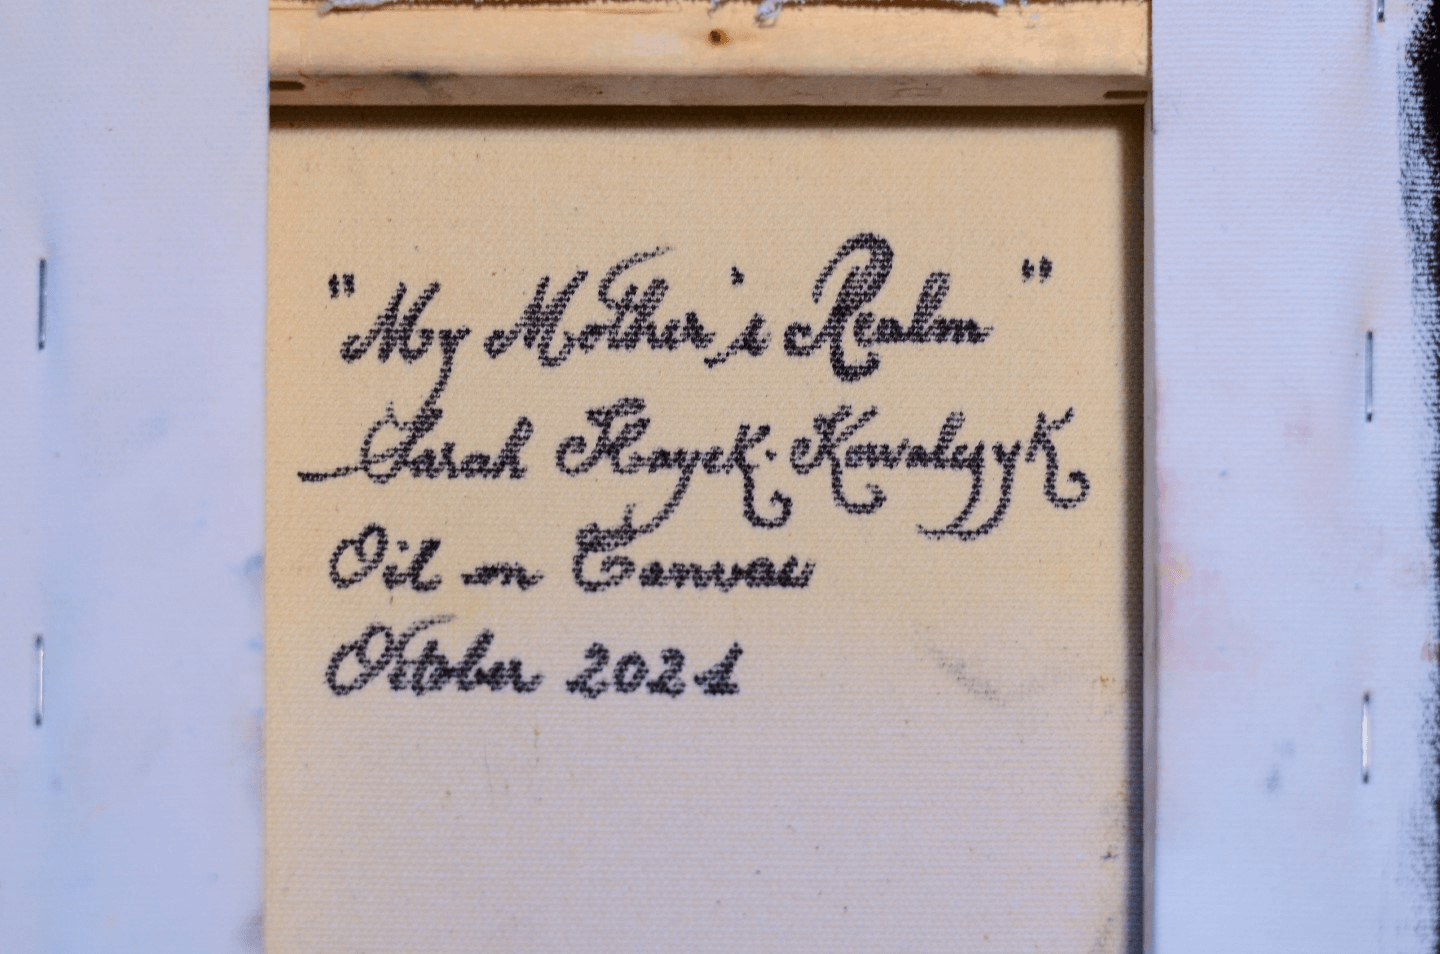 "My Mother's Realm"
Sarah Hayek-Kowalyyk
Oil on Canvas
October 2021